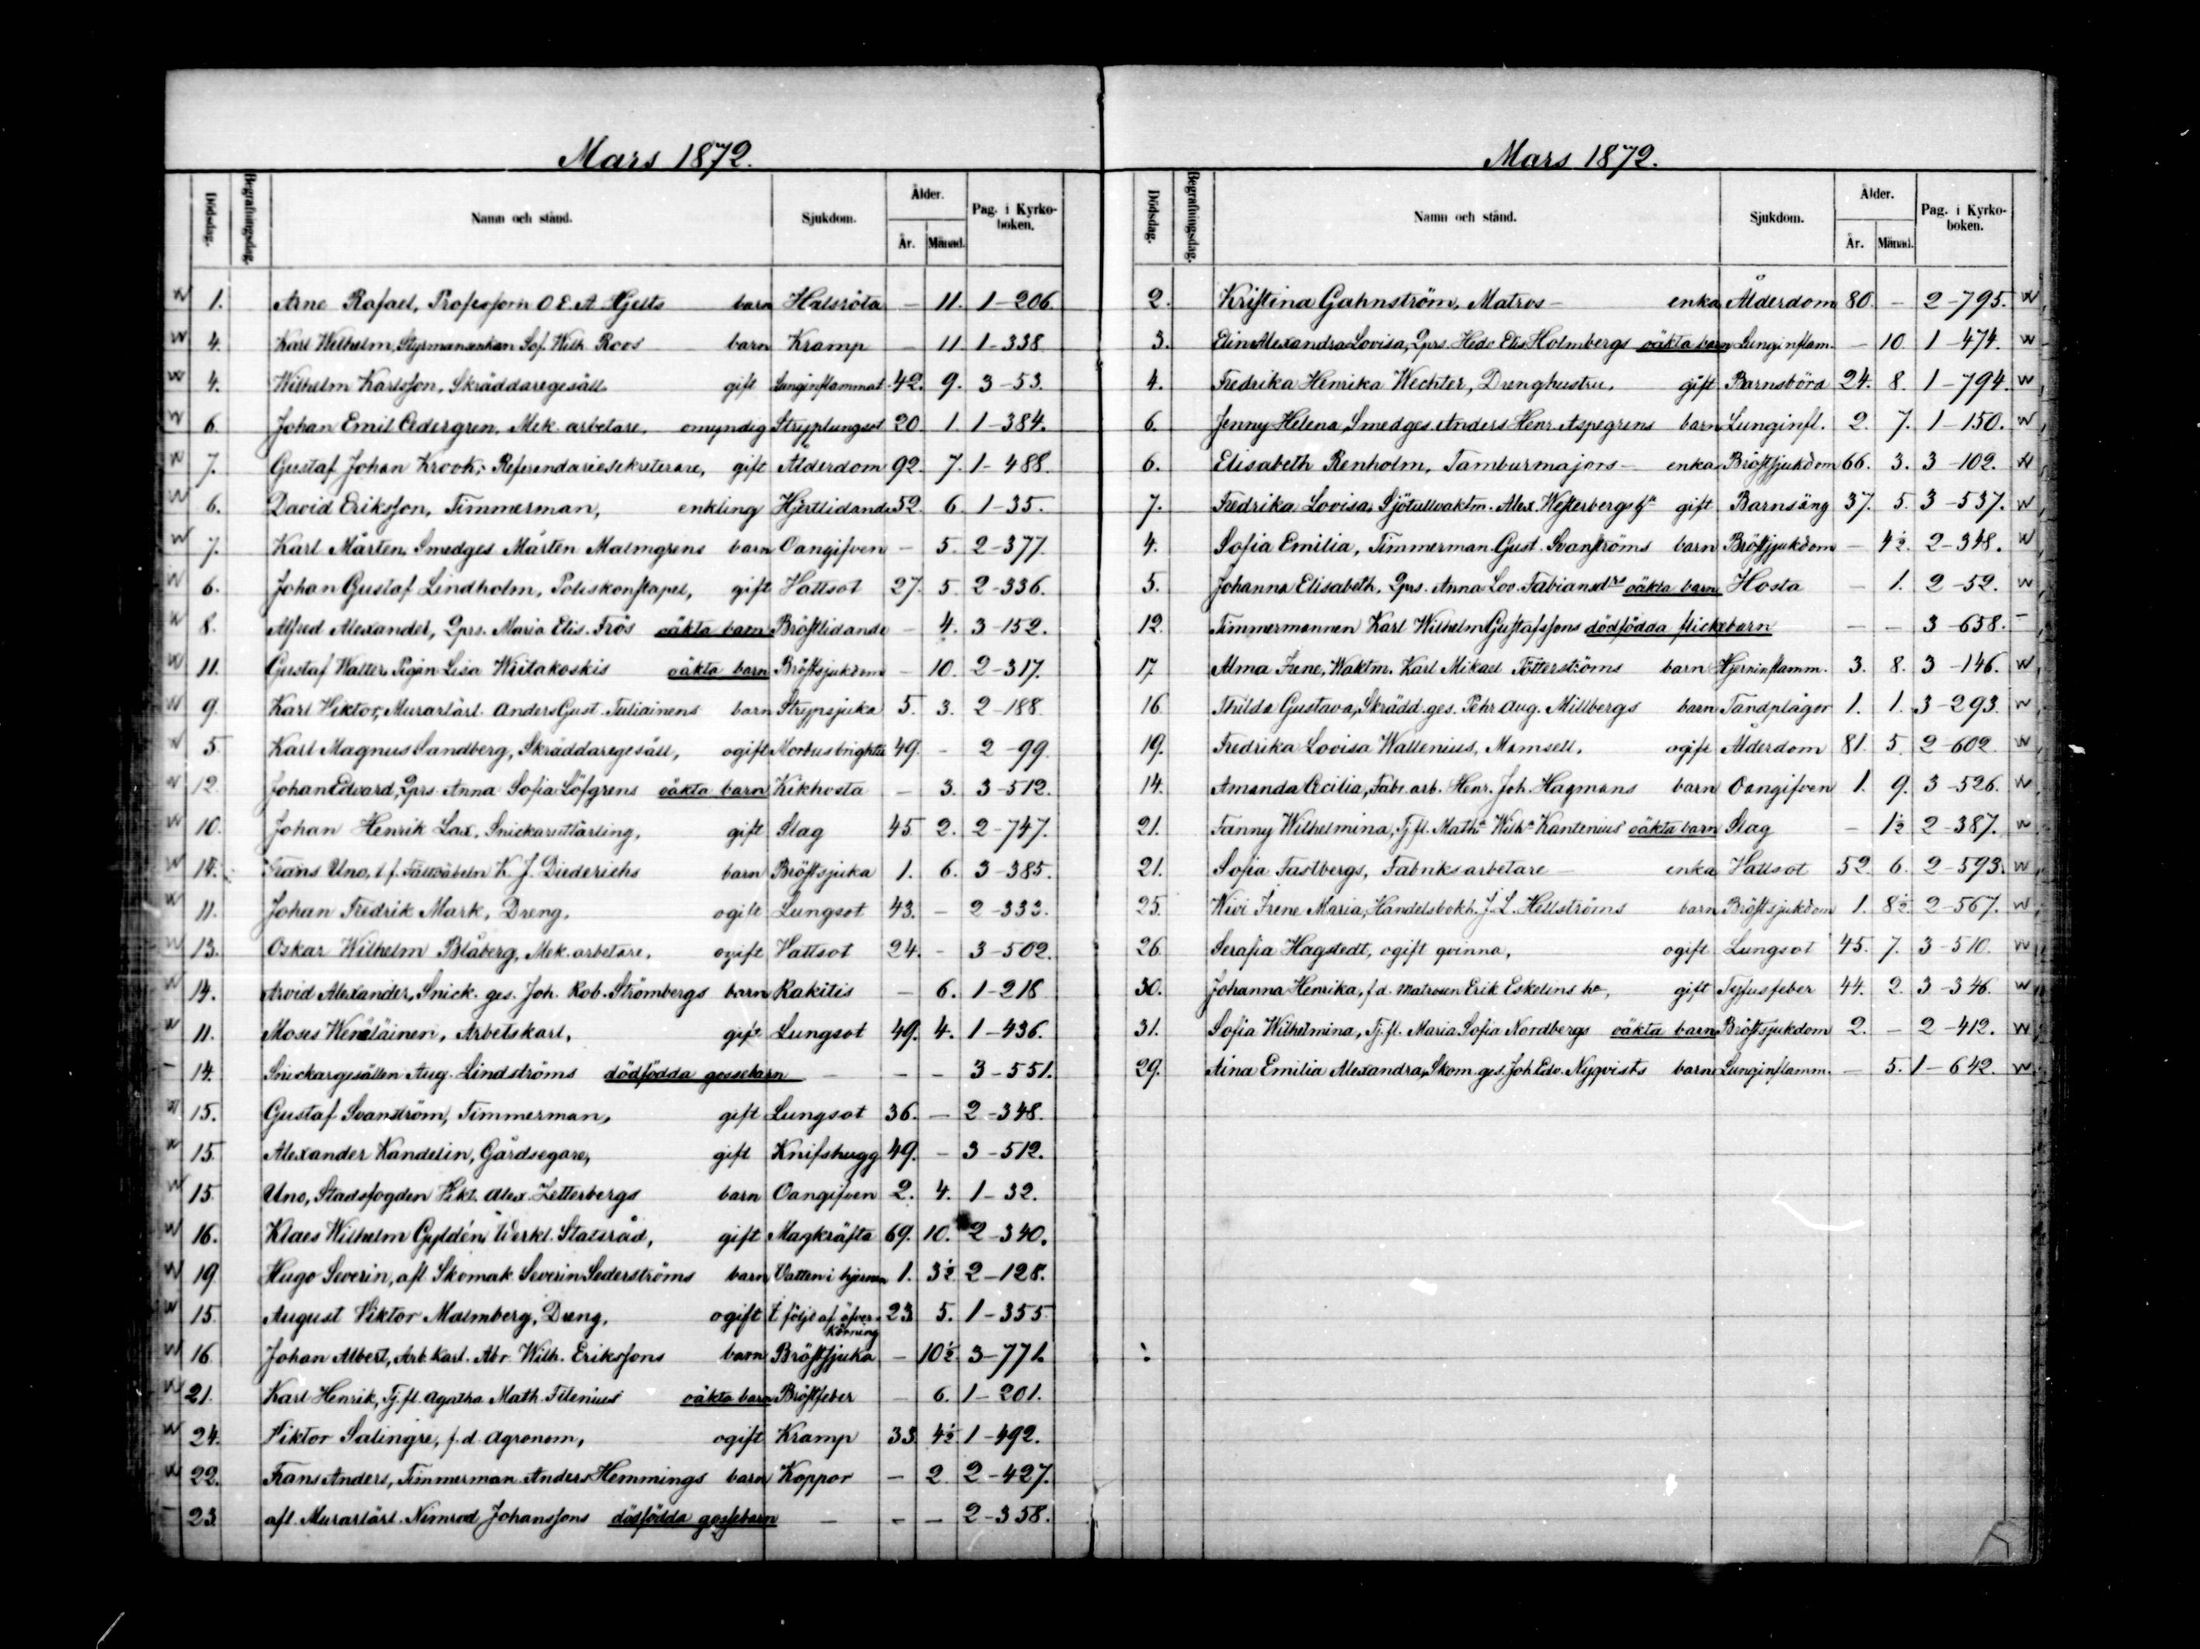 Mars 1872.
Dödsdag. Begrafningsdag. Namn och stånd. Sjukdom. Ålder. År. Månad. Pag. i Kyrko-boken.
1. Arne Rafael, Professorn O E. A Hjelts barn Halsröta — 11. 1-206.
4. Karl Wilhelm, Styrmansenkan Sof. Wilh. Roos barn Kramp — 11 1-338
4. Wilhelm Karlsson, Skräddaregesäll gift Lunginflammat. 42. 9. 3-53.
6. Johan Emil Cedergren, Mek. arbetare, omyndig Stryplungsot 20 1. 1-384.
7. Gustaf Johan Krook, Referendariesekreterare, gift Ålderdom 92. 7. 1-488.
6. David Eriksson, Timmerman, enkling Hjertlidande 52. 6. 1-35.
7. Karl Mårten, Smedges Mårten Malmgrens barn Oangifven — 5. 2-377.
6. Johan Gustaf Lindholm, Poliskonstapel, gift Hattsot 27. 5. 2-336.
8. Alfred Alexander, Qprs. Maria Elis. Frös oäkta barn Bröstlidande — 4. 3-152.
11. Gustaf Walter, Pigan Lisa Wiitakoskis oäkta barn Bröstsjukdom — 10. 2-317.
9. Karl Hiktor, Murarlärl. Anders Gust. Tuliainens barn Strypsjuka 5. 3. 2-188.
5. Karl Magnus Sandberg, Skräddaregesäll, ogift Morbus brightii 49. - 2-99.
12. Johan Edvard, Qprs. Anna Sofia Löfgrens oäkta barn Kikhosta — 3. 3-512.
10. Johan Henrik Lax, Snickareutlärling, gift Slag 45 2. 2-747.
14. Frans Uno, t. f. Fältväbeln K. J. Diederichs barn Bröstsjuka 1. 6. 3-385.
11. Johan Fredrik Mark, Dreng, ogift Lungsot 43. - 2-333.
13. Oskar Wilhelm Blåberg, Mek. arbetare, ogift Hattsot 24. - 3-502.
14. Arvid Alexander, Snick. ges. Joh. Rob. Strömbergs barn Rakitis — 6. 1-218
11. Moses Wenäläinen, Arbetskarl, gift Lungsot 49. 4. 1-436.
14. Snickargesällen Aug. Lindströms dödfödda gossebarn — — — 3-551.
15. Gustaf Svanström, Timmerman, gift Lungsot 36. — 2-348.
15. Alexander Kandelin, Gårdsegare, gift Knifshugg 49. - 3-512.
15. Uno, Stadsfogden Vikt. Alex. Zetterbergs barn Oangifven 2. 4. 1-32.
16. Klaes Wilhelm Gyldén, Verkl. Statsråd, gift Magkräfta 69. 10. 2-340.
19. Hugo Severin, afl. Skomak. Severin Sederströms barn Vatten i hjernan 1. 3½ 2-128.
15. August Viktor Malmberg, Dreng, ogift t. följd af öfverkörning 23 5. 1-355
16. Johan Albert, Arb. karl. Abr. Wilh. Erikssons barn Bröstsjuka — 10½ 3-771.
21. Karl Henrik, Tj. fl. Agatha Math. Filenius oäkta barn Bröstfeber — 6. 1-201.
24. Viktor Salingre, f. d. Agronom, ogift Kramp 33. 4½ 1-492.
22. Frans Anders, Timmerman Anders Hemmings barn Koppor — 2 2-427.
23. afl. Murarlärl. Nimrod Johanssons dödfödda gossebarn — — — 2-358.
Mars 1872.
Dödsdag. Begrafningsdag. Namn och stånd. Sjukdom. Ålder. År. Månad. Pag. i Kyrko-boken.
2. Kristina Gahnström, Matros- enka Ålderdom 80. - 2-795.
3. Elin Alexandra Lovisa, Qprs. Hedv. Elis Holmbergs oäkta barn Lunginflam. — 10. 1-474.
4. Fredrika Henrika Wechter, Drenghustru, gift Barnsbörd 24. 8. 1-794.
6. Jenny Helena, Smedges. Anders Henr. Aspegrens barn Lunginfl. 2. 7. 1-150.
6. Elisabeth Renholm, Tamburmajors- enka Bröstsjukdom 66. 3. 3-102.
7. Fredrika Lovisa, Sjötullvaktm. Alex. Westerbergs h:a gift Barnsäng 37. 5. 3-537.
4. Sofia Emilia, Timmerman Gust. Svanströms barn Bröstsjukdom — 4½. 2-348.
5. Johanna Elisabeth, Qprs. Anna Lov. Fabiansdrs oäkta barn Hosta — 1. 2-52.
12. Timmermannen Karl Wilhelm Gustafssons dödfödda flickebarn — — 3-658.
17. Alma Irene, Waktm. Karl Mikael Tötterströms barn Hjerninflamm. 3. 8. 3-146.
16. Thilda Gustava, Skrädd. ges. Pehr Aug. Millbergs barn Tandplågor 1. 1. 3-293.
19. Fredrika Lovisa Wallenius, Mamsell, ogift Ålderdom 81. 5. 2-602.
14. Amanda Cecilia, Fabr. arb. Henr. Joh. Hagmans barn Oangifven 1. 9. 3-526.
21. Fanny Wilhelmina, Tj. fl. Math:a Wilh:a Kantenius oäkta barn Slag — 1½ 2-387.
21. Sofia Fastbergs, Fabriksarbetare- enka Hattsot 52. 6. 2-593.
25. Wivi Irene Maria, Handelsbokh. J. L. Hellströms barn Bröstsjukdom 1. 8½. 2-567.
26. Serafia Hagstedt, ogift qvinna, ogift Lungsot 45. 7. 3-510.
30. Johanna Henrika, f. d. Matrosen Erik Eskelins h:a, gift Tyfusfeber 44. 2. 3-346.
31. Sofia Wilhelmina, Tj. fl. Maria Sofia Nordbergs oäkta barn Bröstsjukdom 2. - 2-412.
29. Aina Emilia Alexandra, Skom. ges. Joh. Edv. Nyqvists barn Lunginflamm. — 5. 1-642.